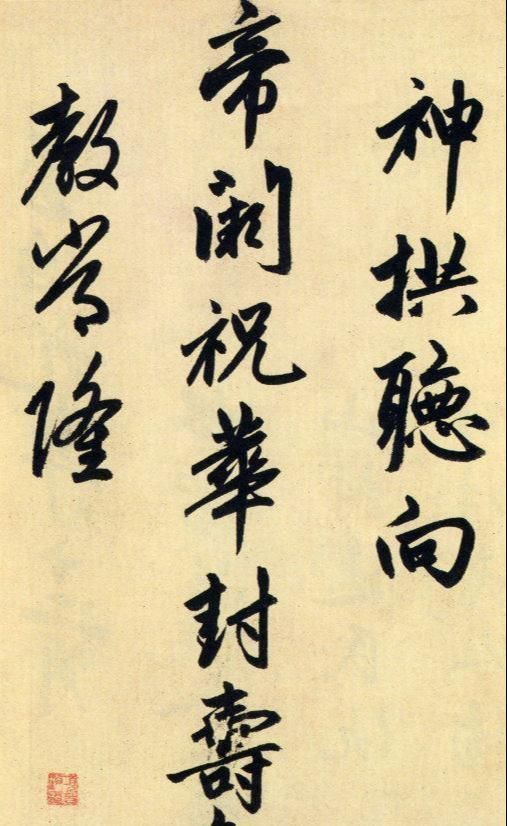 神拱聽向
帝闕祝華封壽
教常隆